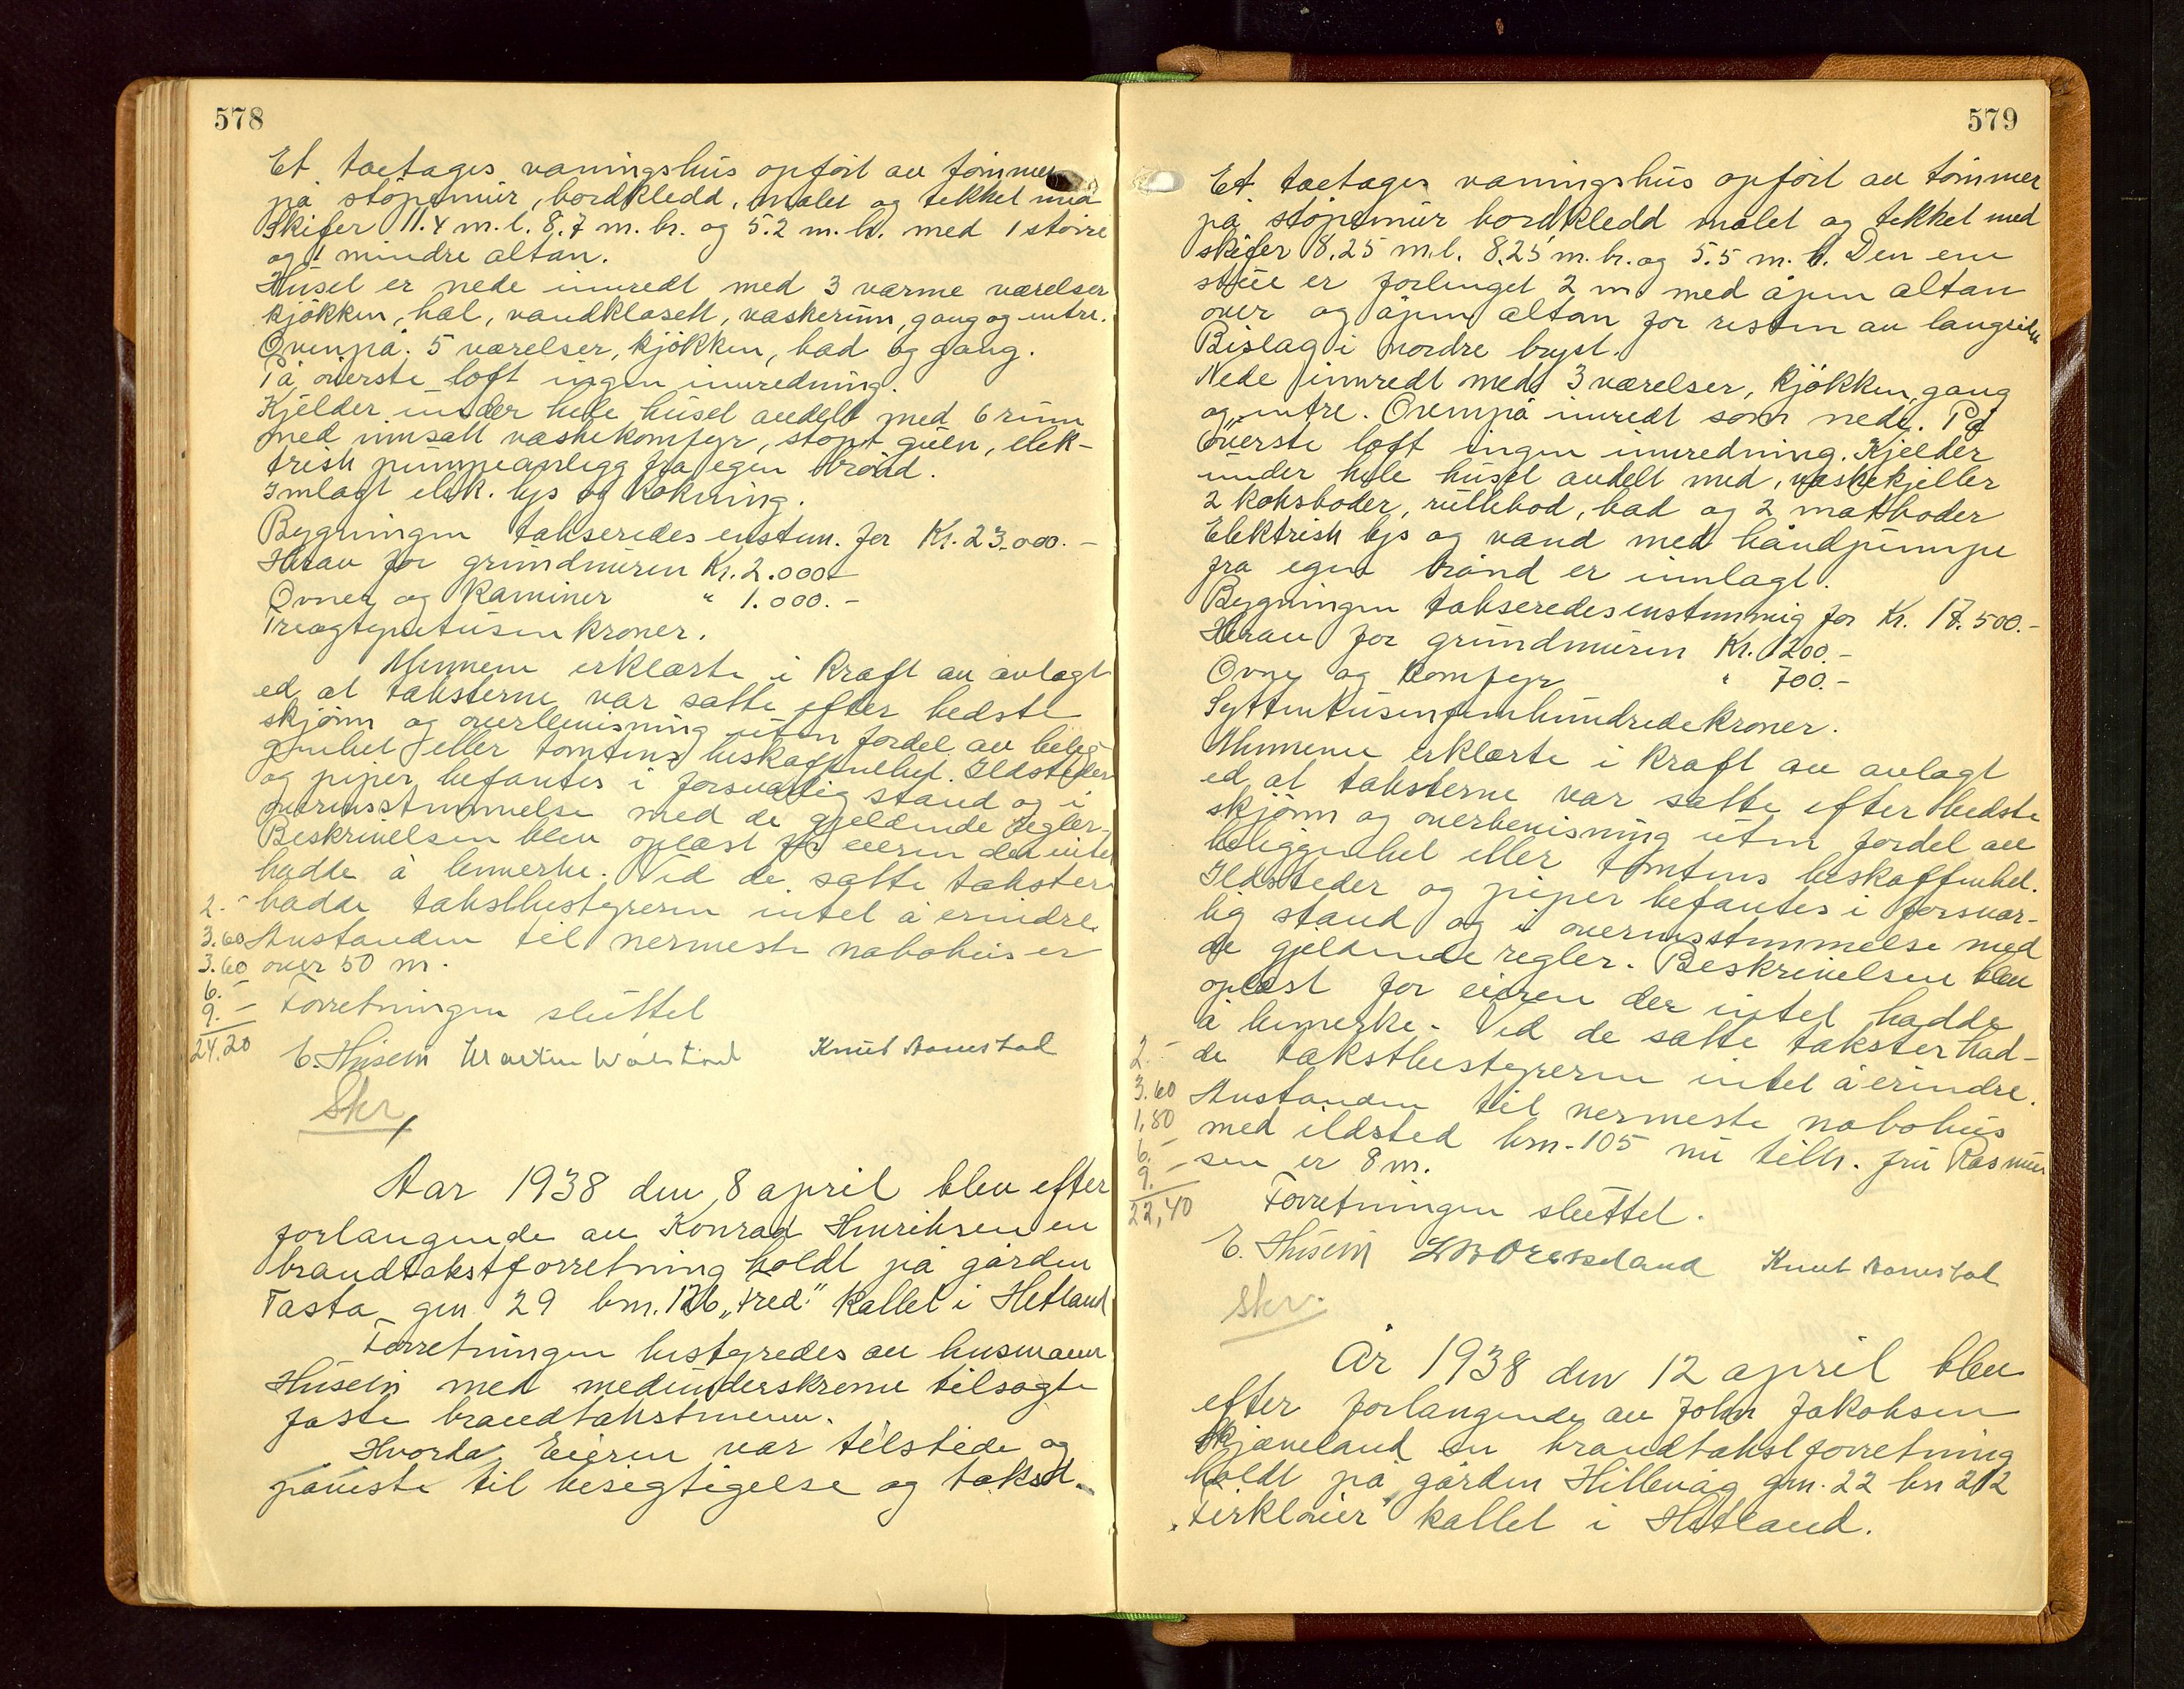 578
Et toetages vaningshus opfört av tömmer
på stöpemur, bordkledd, malet og tekket med
Skifer 11.4 m. l. 8.7 m. br. og 5.2 m. h. med 1 större
og 1 mindre altan.
Huset er nede innredt med 3 varme værelser
kjökken, hal, vandklosett, vaskerum, gang og entre.
Ovenpå. 5 værelser, kjökken, bad og gang.
På överste loft ingen innredning.
Kjelder under hele huset avdelt med 6 rum
med innsatt vaskekomfyr, stöpt gulv, elek-
trisk pumpeanlegg fra egen brönd.
Innlagt elek. lys og kokning.
Bygningen takseredes enstem. for Kr. 23.000.-
Herav for grundmuren Kr. 2.000.-
Ovner og Kaminer " 1.000.-
Treogtyvetusen kroner.
Mennene erklærte i kraft av avlagt
ed at taksterne var satte efter bedste
skjönn og overbevisning uten fordel av belig-
genhet eller tomtens beskaffenhet. Ildsteder
og piper befantes i forsvarlig stand og i
overensstemmelse med de gjeldende regler.
Beskrivelsen blev oplæst for eieren der intet
hadde å bemerke. Ved de satte takster
2.- hadde takstbestyreren intet å erindre.
3.60 Avstanden til nermeste nabohus er
3.60 over 50 m.
6.-
9.- Forretningen sluttet
24,20 E. Husein Martin Wölstad Knut Aamestad
Skr,
Aar 1938 den 8 april blev efter
forlangende av Konrad Henriksen en
brandtakstforretning holdt på gården
Tasta gnr. 29 bnr. 126 „Fred" kallet i Hetland
Forretningen bestyredes av husmann
Husein med medunderskrevne tilsagte
faste brandtakstmenn.
Hvorda Eieren var tilstede og
påviste til besigtigelse og takst.
579
Et toetages vaningshus opfört av tömmer
på stöpemur bordkledd malet og tekket med
skifer 8.25 m. l. 8.25 m. br. og 5.5 m. h. Den ene
stue er forlenget 2 m. med åpen altan
over og åpen altan for resten av langside
Bislag i nordre bryst.
Nede innredt med 3 værelser, kjökken, gang
og entre. Ovenpå inredt som nede. På
överste loft ingen innredning. Kjelder
under hele huset avdelt med, vaskekjeller
2 koksboder, rullebod, bad og 2 matboder
Elektrisk lys og vand med håndpumpe
fra egen brönd er innlagt.
Bygningen takseredes enstemmig for Kr. 17.500.-
Herav for grundmuren Kr. 1200.-
Ovne og Komfyr " 700.-
Syttentusenfemhundredekroner.
Mennene erklærte i kraft av avlagt
ed at taksterne var satte efter bedste
skjönn og overbevisning uten fordel av
beliggenhet eller tomtens beskaffenhet.
Ildsteder og piper befantes i forsvar-
lig stand og i overensstemmelse med
de gjeldende regler. Beskrivelsen blev
oplæst for eieren der intet hadde
å bemerke. Ved de satte takster had-
2.- de takstbestyreren intet å erindre.
3.60 Avstanden til nermeste nabohus
1,80 med ildsted bnr. 105 nu tilh. fru Rasmus
6.- sen er 8 m.
9.-
22,40 Forretningen sluttet.
E. Husein Knut Aamestad
Skr.
År 1938 den 12 april blev
efter forlangende av John Jakobsen
Skjæveland en brandtakstforretning
holdt på gården Hillevåg gnr. 22 bnr 212
„Firklöver" kallet i Hetland.